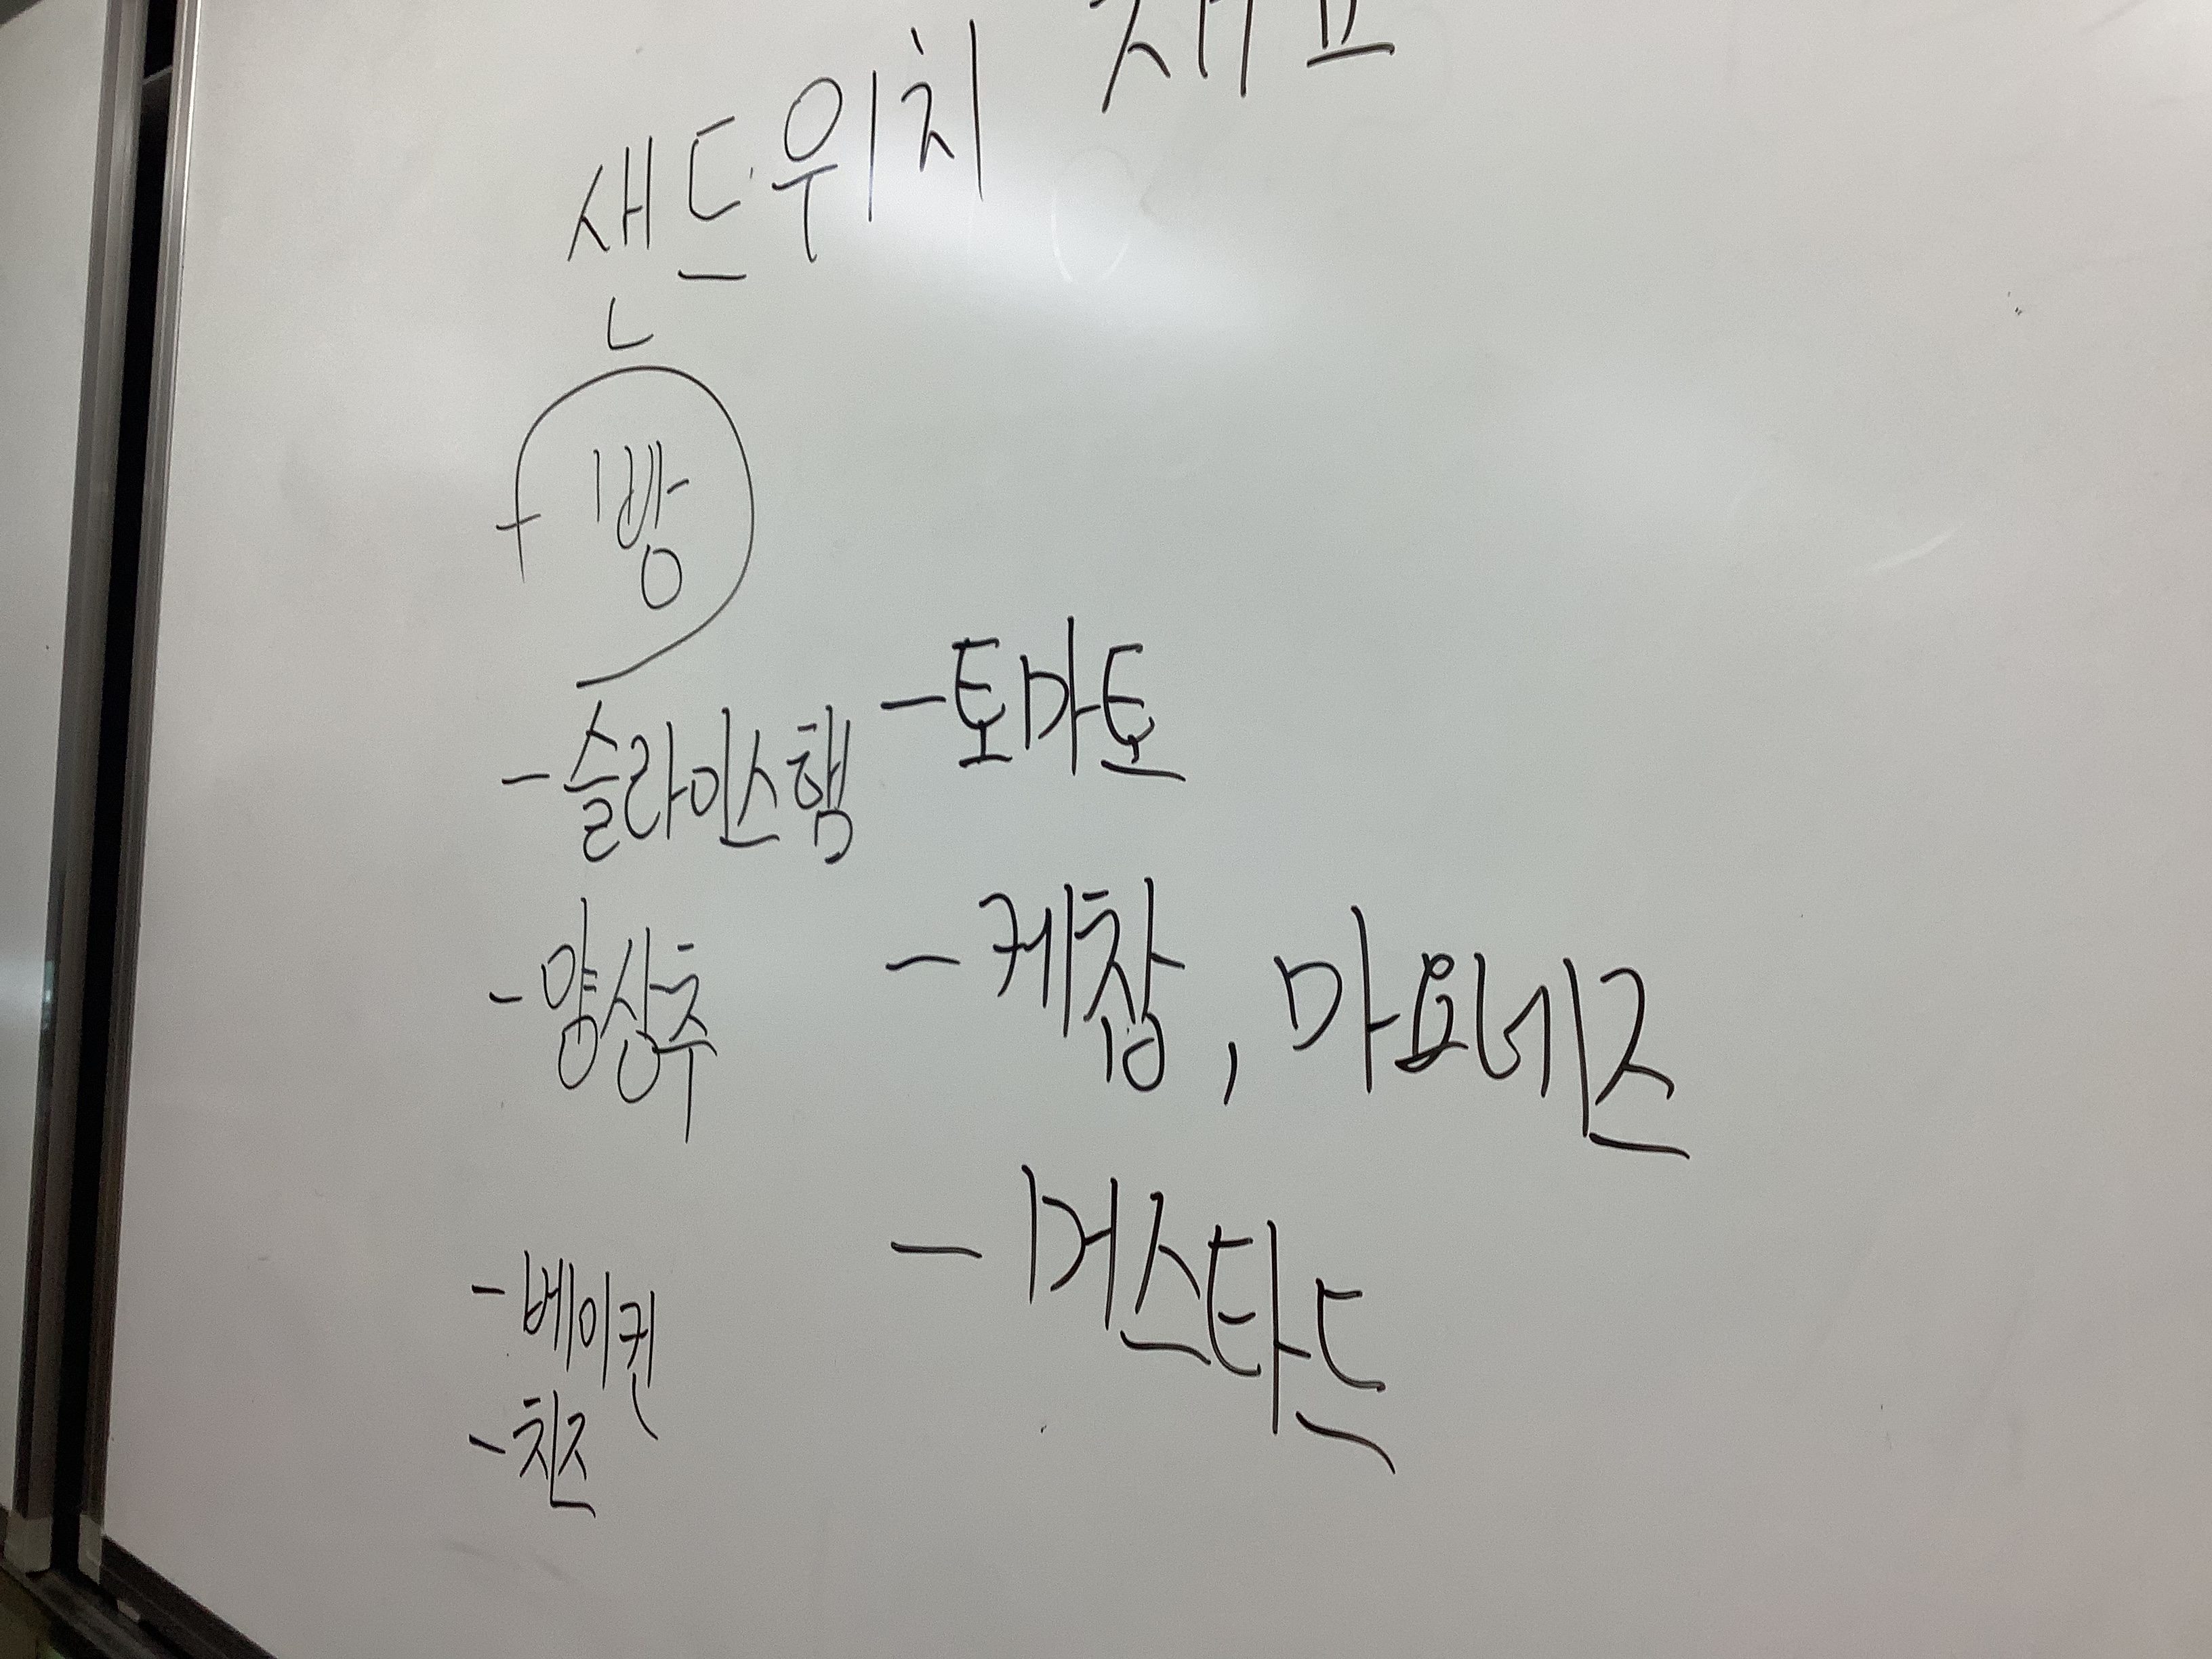 샌드위치 재료
빵
-슬라이스햄
-양상추
-베이컨
-치즈
-토마토
-케찹, 마요네즈
-머스타드